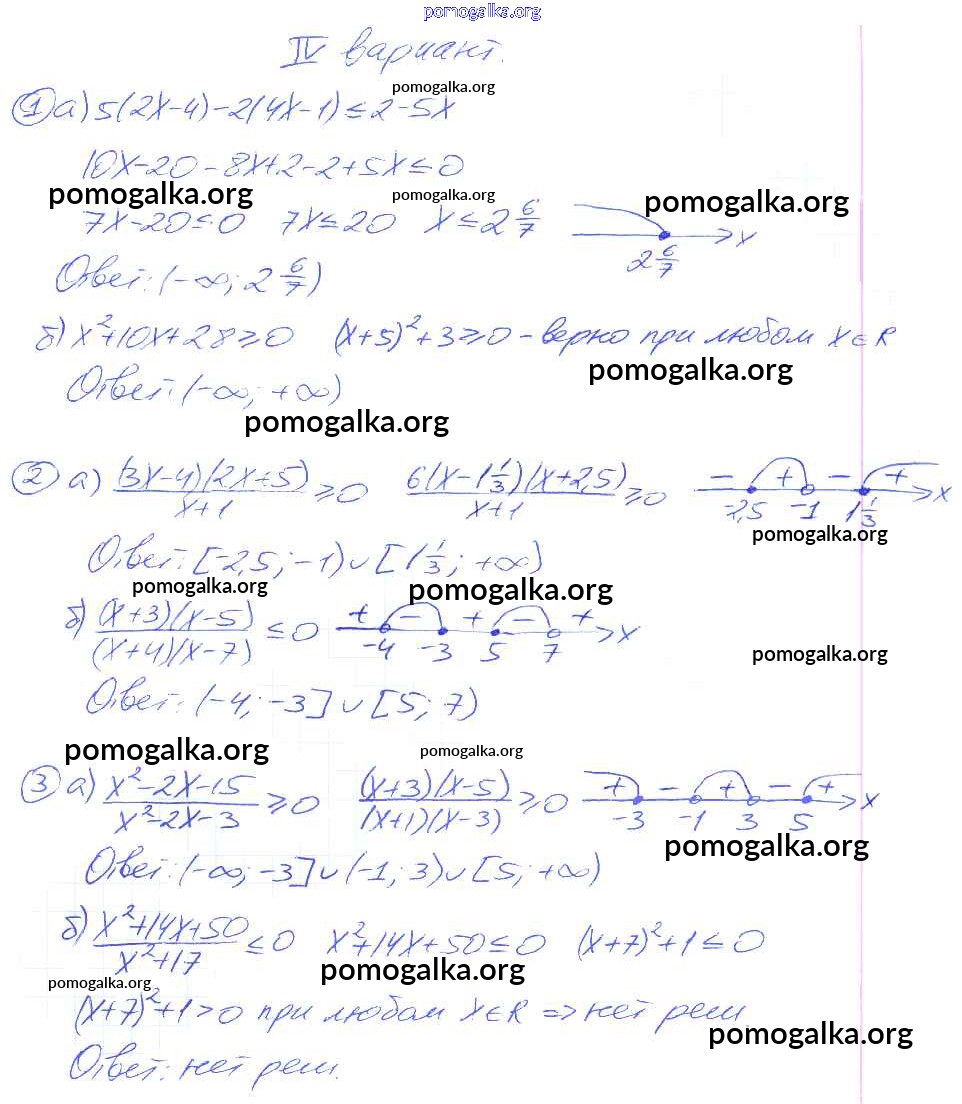 pomogalka.org
IV вариант.
pomogalka.org
① а) 5(2x-4)-2(4x-1)≤2-5x
10x-20-8x+2-2+5x≤0
pomogalka.org pomogalka.org pomogalka.org
7x-20≤0 7x≤20 x≤2 6/7 x
2 6/7
Ответ: (-∞; 2 6/7)
б) x²+10x+28≥0 (x+5)²+3≥0 - верно при любом x∈R
pomogalka.org
Ответ: (-∞; +∞)
pomogalka.org
② а) (3x-4)(2x+5)/x+1 ≥0 6(x-1 1/3)(x+2,5)/x+1 ≥0 - + - + x
-2,5 -1 1 1/3
pomogalka.org
Ответ: [-2,5; -1)∪[1 1/3; +∞)
pomogalka.org pomogalka.org
б) (x+3)(x-5)/(x+4)(x-7) ≤0 + - + - + x
-4 -3 5 7
pomogalka.org
Ответ: (-4; -3]∪[5; 7)
pomogalka.org pomogalka.org
③ а) x²-2x-15/x²-2x-3 ≥0 (x+3)(x-5)/(x+1)(x-3) ≥0 + - + - + x
-3 -1 3 5
pomogalka.org
Ответ: (-∞; -3]∪(-1; 3)∪[5; +∞)
б) x²+14x+50/x²+17 ≤0 x²+14x+50≤0 (x+7)²+1≤0
pomogalka.org pomogalka.org
(x+7)²+1>0 при любом x∈R ⇒ нет реш.
pomogalka.org
Ответ: нет реш.